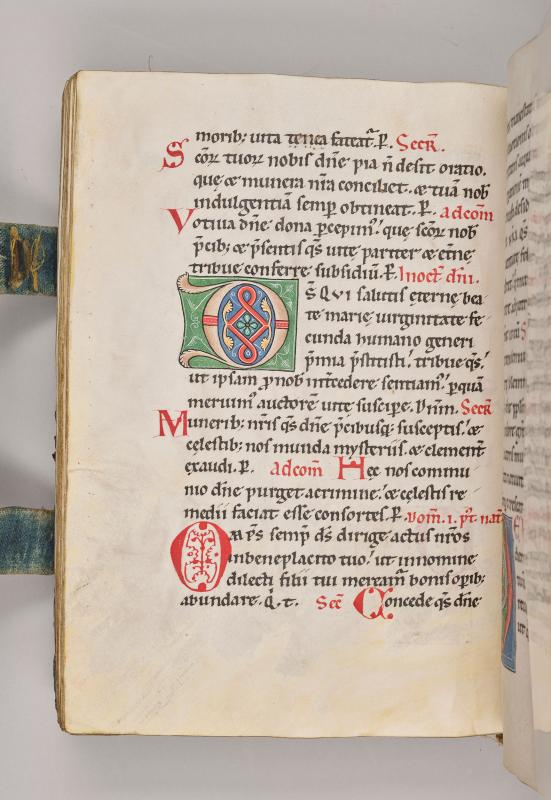 moribꝫ uita teneā fateat᷑. P. Secr̄.
Scōꝝ tuoꝝ nobis dn̄e pia n̄ desit oratio.
que ⁊ munera nr̄a conciliet. ⁊ tuā nob̄
indulgentiā semp̄ obtineat. P. ad com̄
Votiua dn̄e dona ꝑcepimꝰ. que scōꝝ nob̄
p̄cibꝫ ⁊ p̄sentis q̄s uite pariter ⁊ et̄ne
tribue conferre subsidiū. P. In oct̄ dn̄i.
DS̄ QVI salutis ęternę bea
te marię uirginitate fe
cunda humano generi
p̄mia p̄stitisti. tribue q̄s.
ut ipsam ꝓ nob̄ int̄cedere sentiamꝰ. ꝑ quā
meruimꝰ auctorē uite suscipe. D̄nm̄. Secr̄
Muneribꝫ nr̄is q̄s dn̄e p̄cibusqꝫ susceptis. ⁊
cęlestibꝫ nos munda mysteriis. ⁊ clement̄
exaudi. P. ad com̄ Hęc nos commu
nio dn̄e purget a crimine. ⁊ cęlestis re
medii faciat esse consortes. P. Dom̄. i. p̄t nat̄
Om̄ps̄ semp̄ ds̄ dirige actus nr̄os
in beneplacito tuo. ut in nomine
dilecti filii tui meream̄ bonis op̄ibꝫ
abundare. Q̄. t. Secr̄ Concede q̄s dn̄e